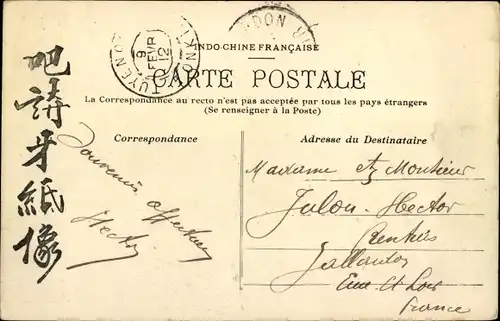 INDO-CHINE FRANÇAISE
CARTE POSTALE
La Correspondance au recto n'est pas acceptée par tous les pays étrangers
(Se renseigner à la Poste)
9
FEVR
12
TONKIN
Correspondance
Souvenirs affectueux
Hector
Adresse du Destinataire
Madame et Monsieur
Hector
Rentiers
Eure et Loir
France
牙紙像